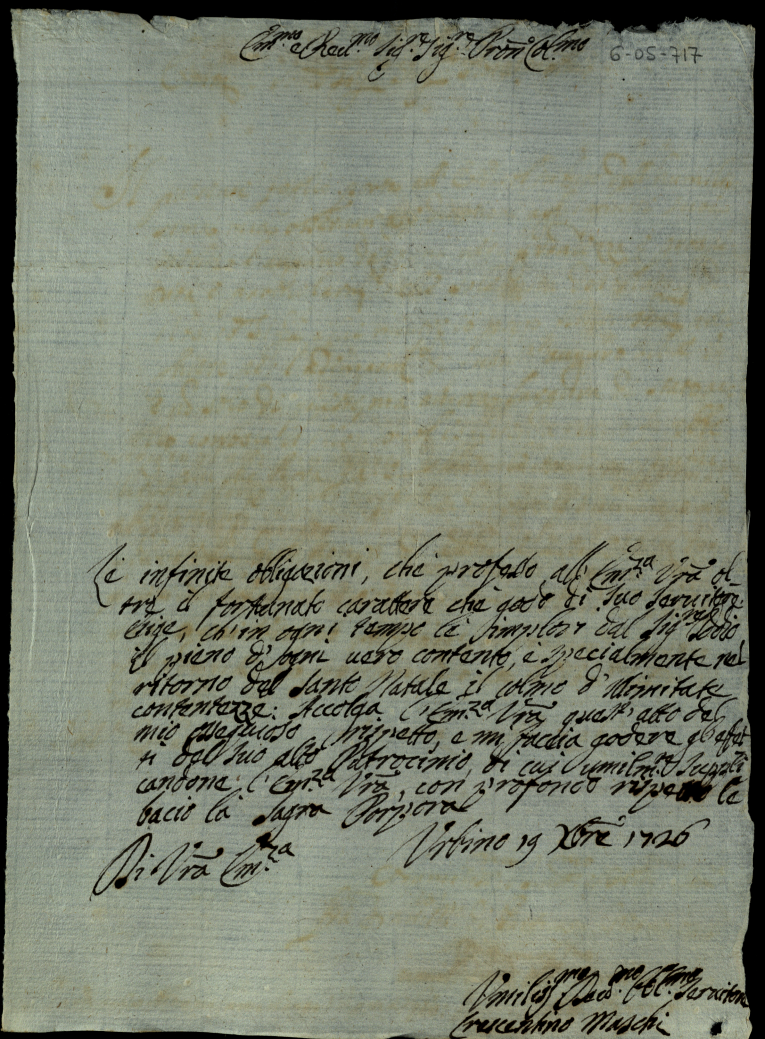 Em.mo e Reu.mo Sig.re Sig.re Pron Col.mo
6-05-717
Le infinite obligazioni, che professo all' Em.za Vrã ol-
tre il fortunato carattere che godo di suo seruitore
esige, ch' in ogni tempo le implori dal Sig.re Iddio
il pieno d'ogni uero contento, e specialmente nel
ritorno del Santo Natale il colmo d'illimitate
contentezze: Accolga l'Em.za Vrã quest' atto del
mio ossequioso rispetto, e mi faccia godere gl' effet
ti del suo alto Patrocinio, di cui umilm.te suppli
candone l'Em.za Vrã, con profondo rispetto le
bacio la Sagra Porpora
Di Vrã Em.za
Urbino 19 Xbre 1726
Vmiliss.mo Deuo.mo Obl.mo Seruitore
Crescentino Maschi